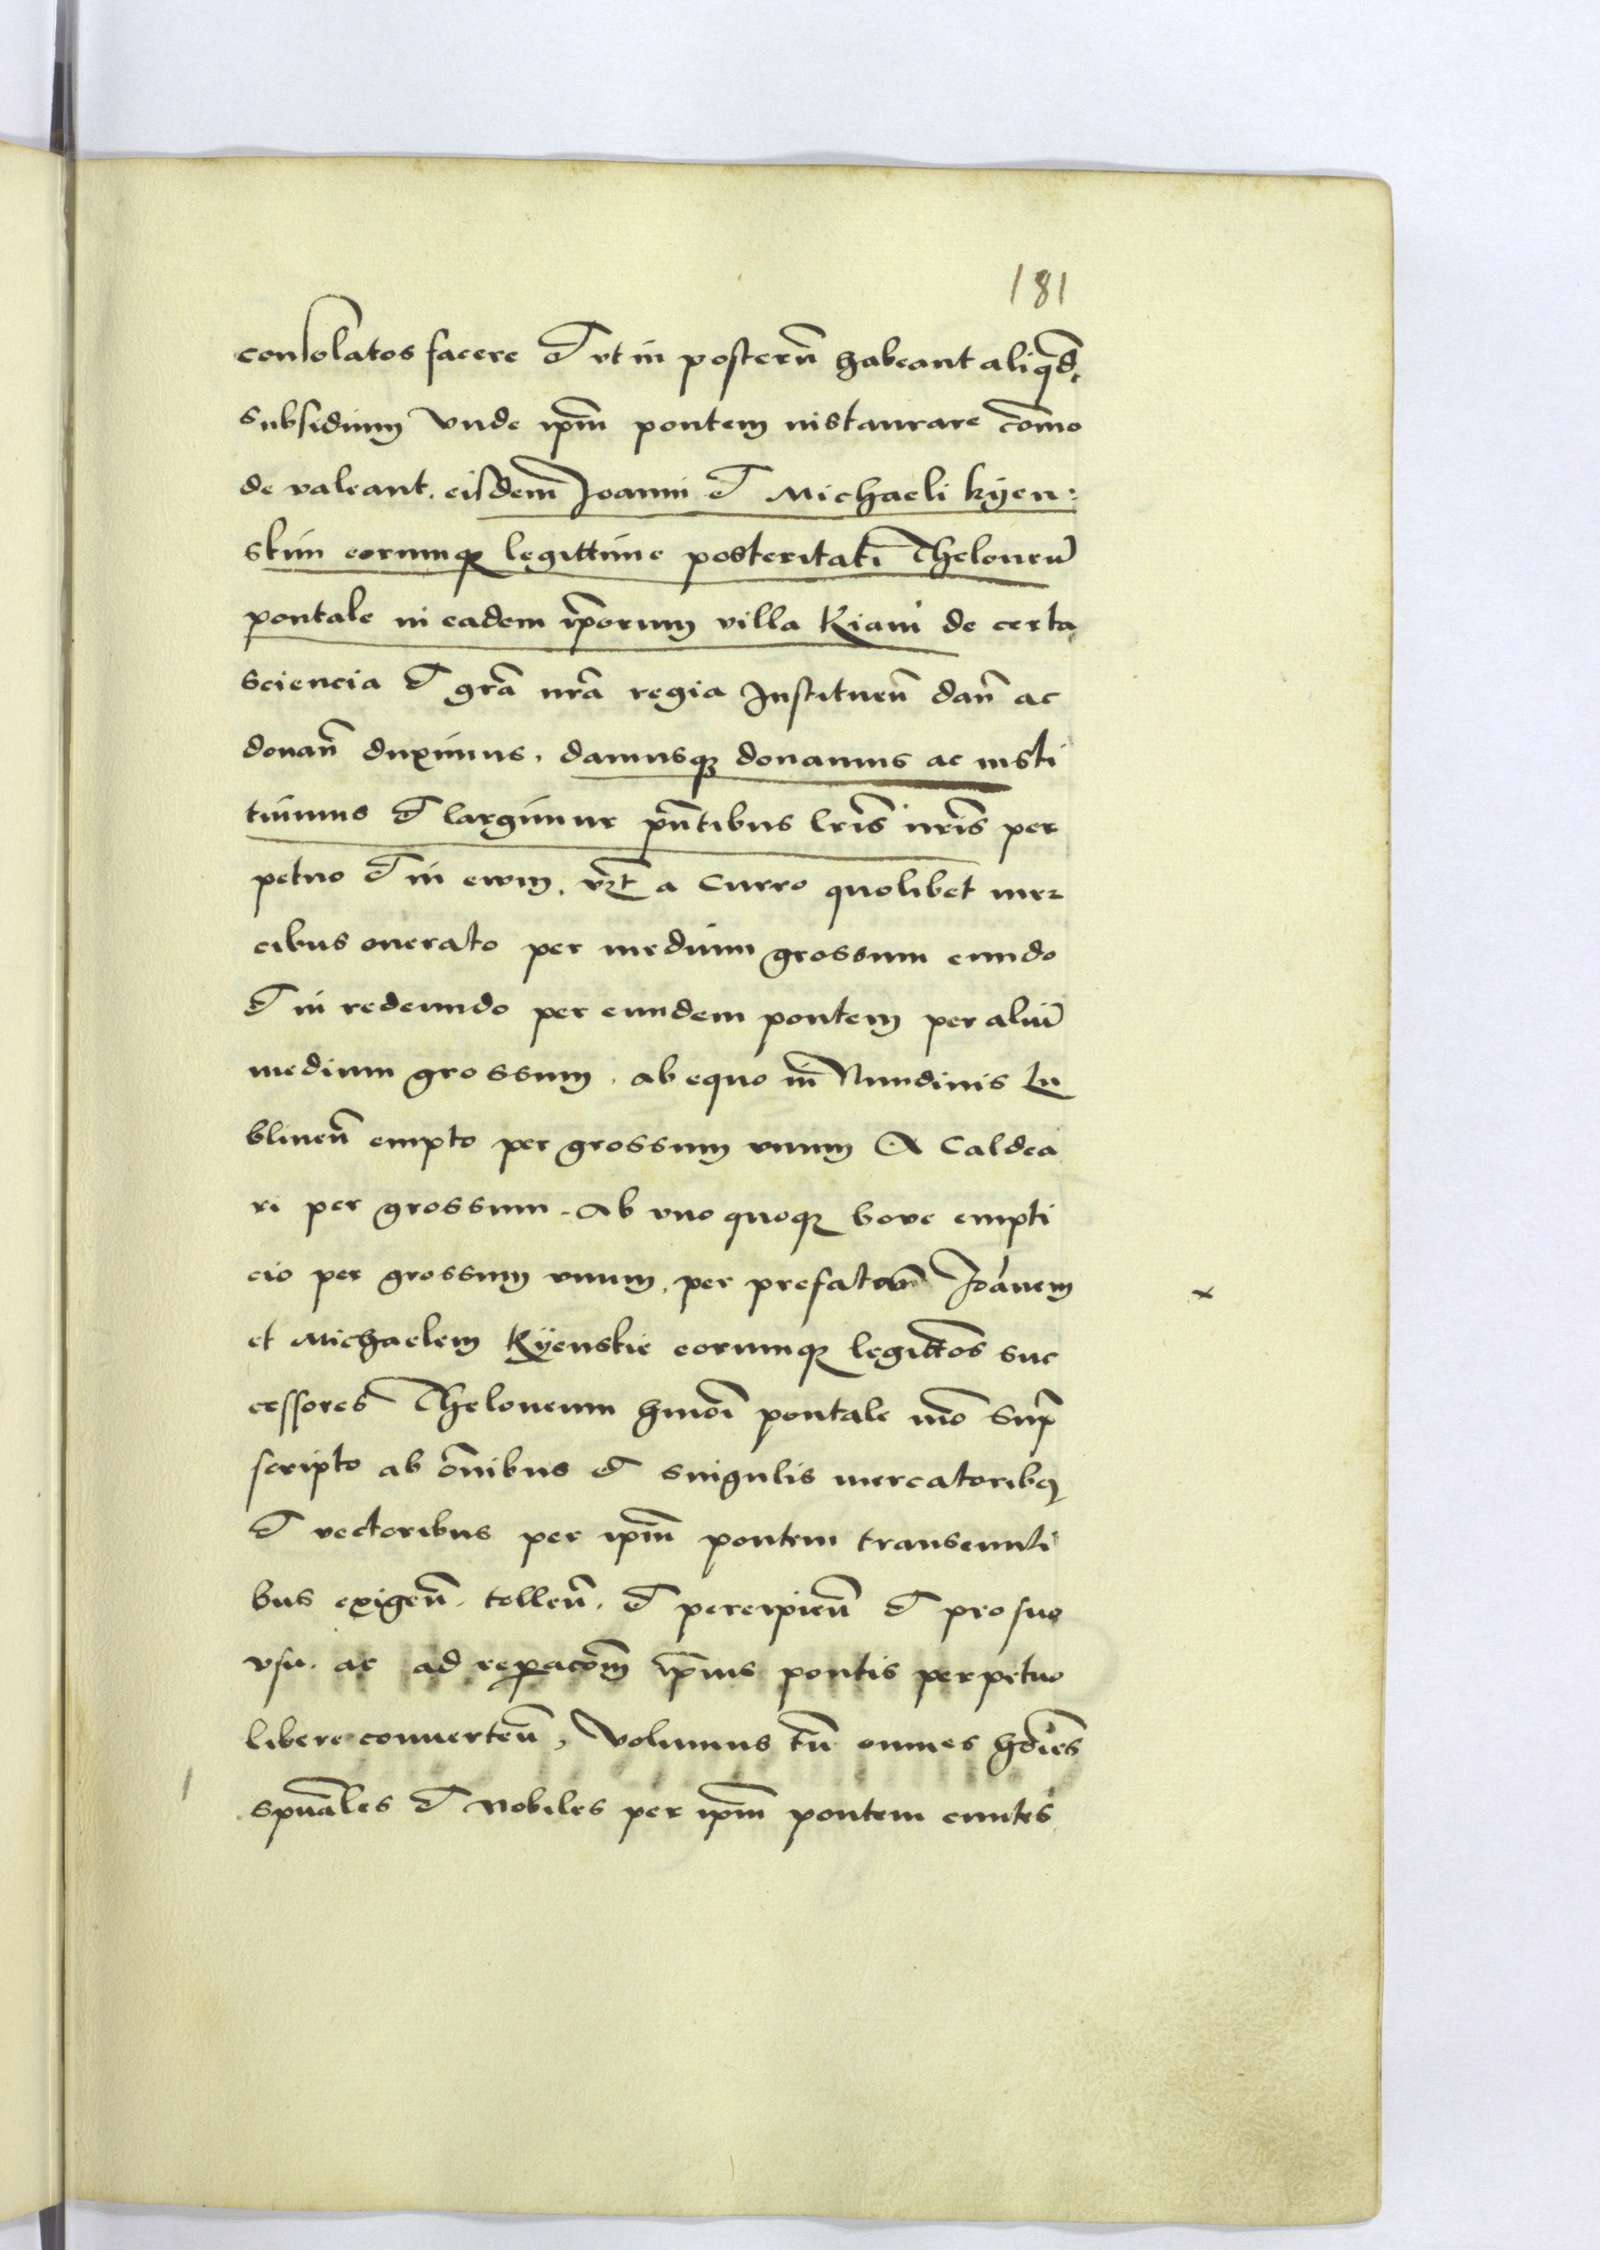 181
consolatos facere et vt in posterū habeant aliqd̄
subsidium vnde ip̄m pontem instaurare com̄o
de valeant. eisdem Joanni et Michaeli Kyen:
skim eorumq legittime posteritati Theloneū
pontale in eadem ip̄orum villa Kiani de certa
sciencia et grā nrā regia Instituen̄ dan̄ ac
donan̄ duximus. damusq donamus ac insti
tuimus et largimur pn̄tibus lrīs nrīs per
petuo et in ewm. vzt̄ a Curro quolibet mer
cibus onerato per medium grossum eundo
et in redeundo per eundem pontem per aliū
medium grossum. ab equo in Nundinis Lu
blinen̄ empto per grossum vnum A Caldea
ri per grossum. Ab vno quoq boue empti
cio per grossum vnum. per prefatum Joānem
et Michaelem Kÿenskie eorumq legittōs suc
cessores Theloneum hmōi pontale mō Sup̄
scripto ab om̄nibus et singulis mercatoribq
et vectoribus per ip̄m pontem transeunti
bus exigen̄. tollen̄. et percipien̄ et pro suo
vsu. ac ad repacōm ip̄ius pontis perpetuo
libere conuerten̄, Volumus tn̄ omnes hoīes
spūales et Nobiles per ip̄m pontem euntes